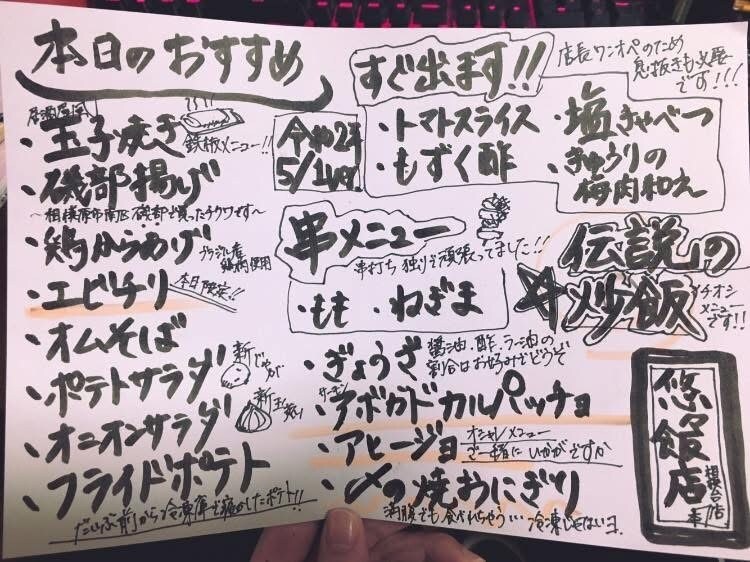 本日のおすすめ
居酒屋風
・玉子焼き
鉄板メニュー!!
・磯部揚げ
〜相模原市南区磯部で買ったチクワです〜
・鶏からあげ
ブラジル産
鶏肉使用
・エビチリ
本日限定!!
・オムそば
・ポテトサラダ
新じゃが
・オニオンサラダ
新玉ねぎ
・フライドポテト
だいぶ前から冷凍庫で寝かしたポテト!!
令和2年
5/1
すぐ出ます!!
店長ワンオペのため
息抜きも必要
です!!!
・トマトスライス
・もずく酢
・塩きゃべつ
・きゅうりの
梅肉和え
串メニュー
串打ち独りで頑張ってました!!
・もも
・ねぎま
伝説の
炒飯
イチオシ
メニュー
です!!
・ぎょうざ
醤油・酢・ラー油の
割合はお好みでどうぞ
サーモン
・アボガドカルパッチョ
・アヒージョ
オシャレメニュー
ご一緒にいかがですか
・〆の焼おにぎり
満腹でも食べれちゃう…冷凍じゃないヨ
悠々飯店
相模台店